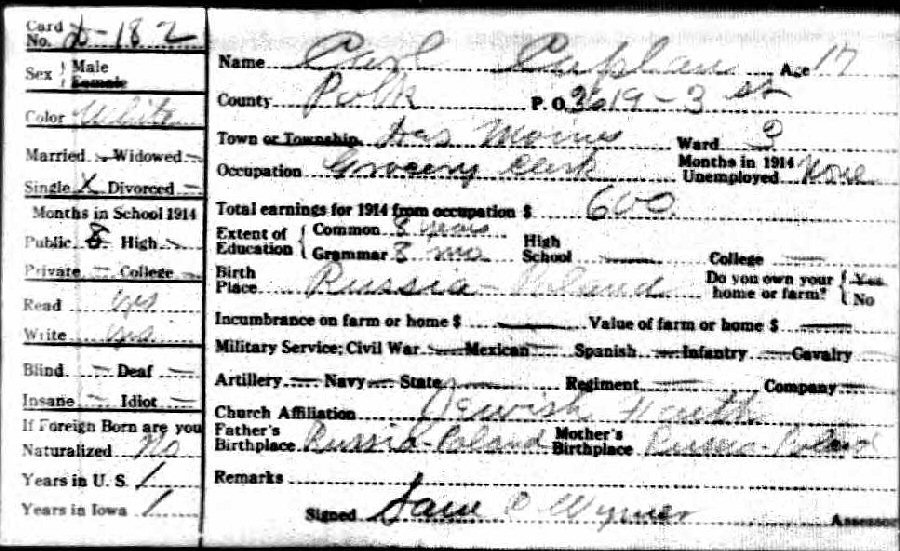 Card No. D-182
Sex Male Female
Color White
Married Widowed
Single X Divorced
Months in School 1914
Public 8 High
Private College
Read yes
Write yes
Blind Deaf
Insane Idiot
If Foreign Born are you
Naturalized No
Years in U. S. 1
Years in Iowa 1
Name Carl Caplan Age 17
County Polk P. O. 3619-3 st
Town or Township Des Moines Ward
Occupation Grocery Clerk Months in 1914 Unemployed None
Total earnings for 1914 from occupation $ 600
Extent of Education Common 8 years
Grammar 8 mo High School College
Birth Place Russia-Poland Do you own your home or farm? Yes No
Incumbrance on farm or home $ Value of farm or home $
Military Service: Civil War Mexican Spanish Infantry Cavalry
Artillery Navy State Regiment Company
Church Affiliation Jewish Faith
Father's Birthplace Russia-Poland Mother's Birthplace Russia-Poland
Remarks
Signed Wymer Assessor